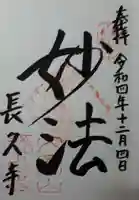 奉拝
令和四年十二月四日
妙法
長久寺